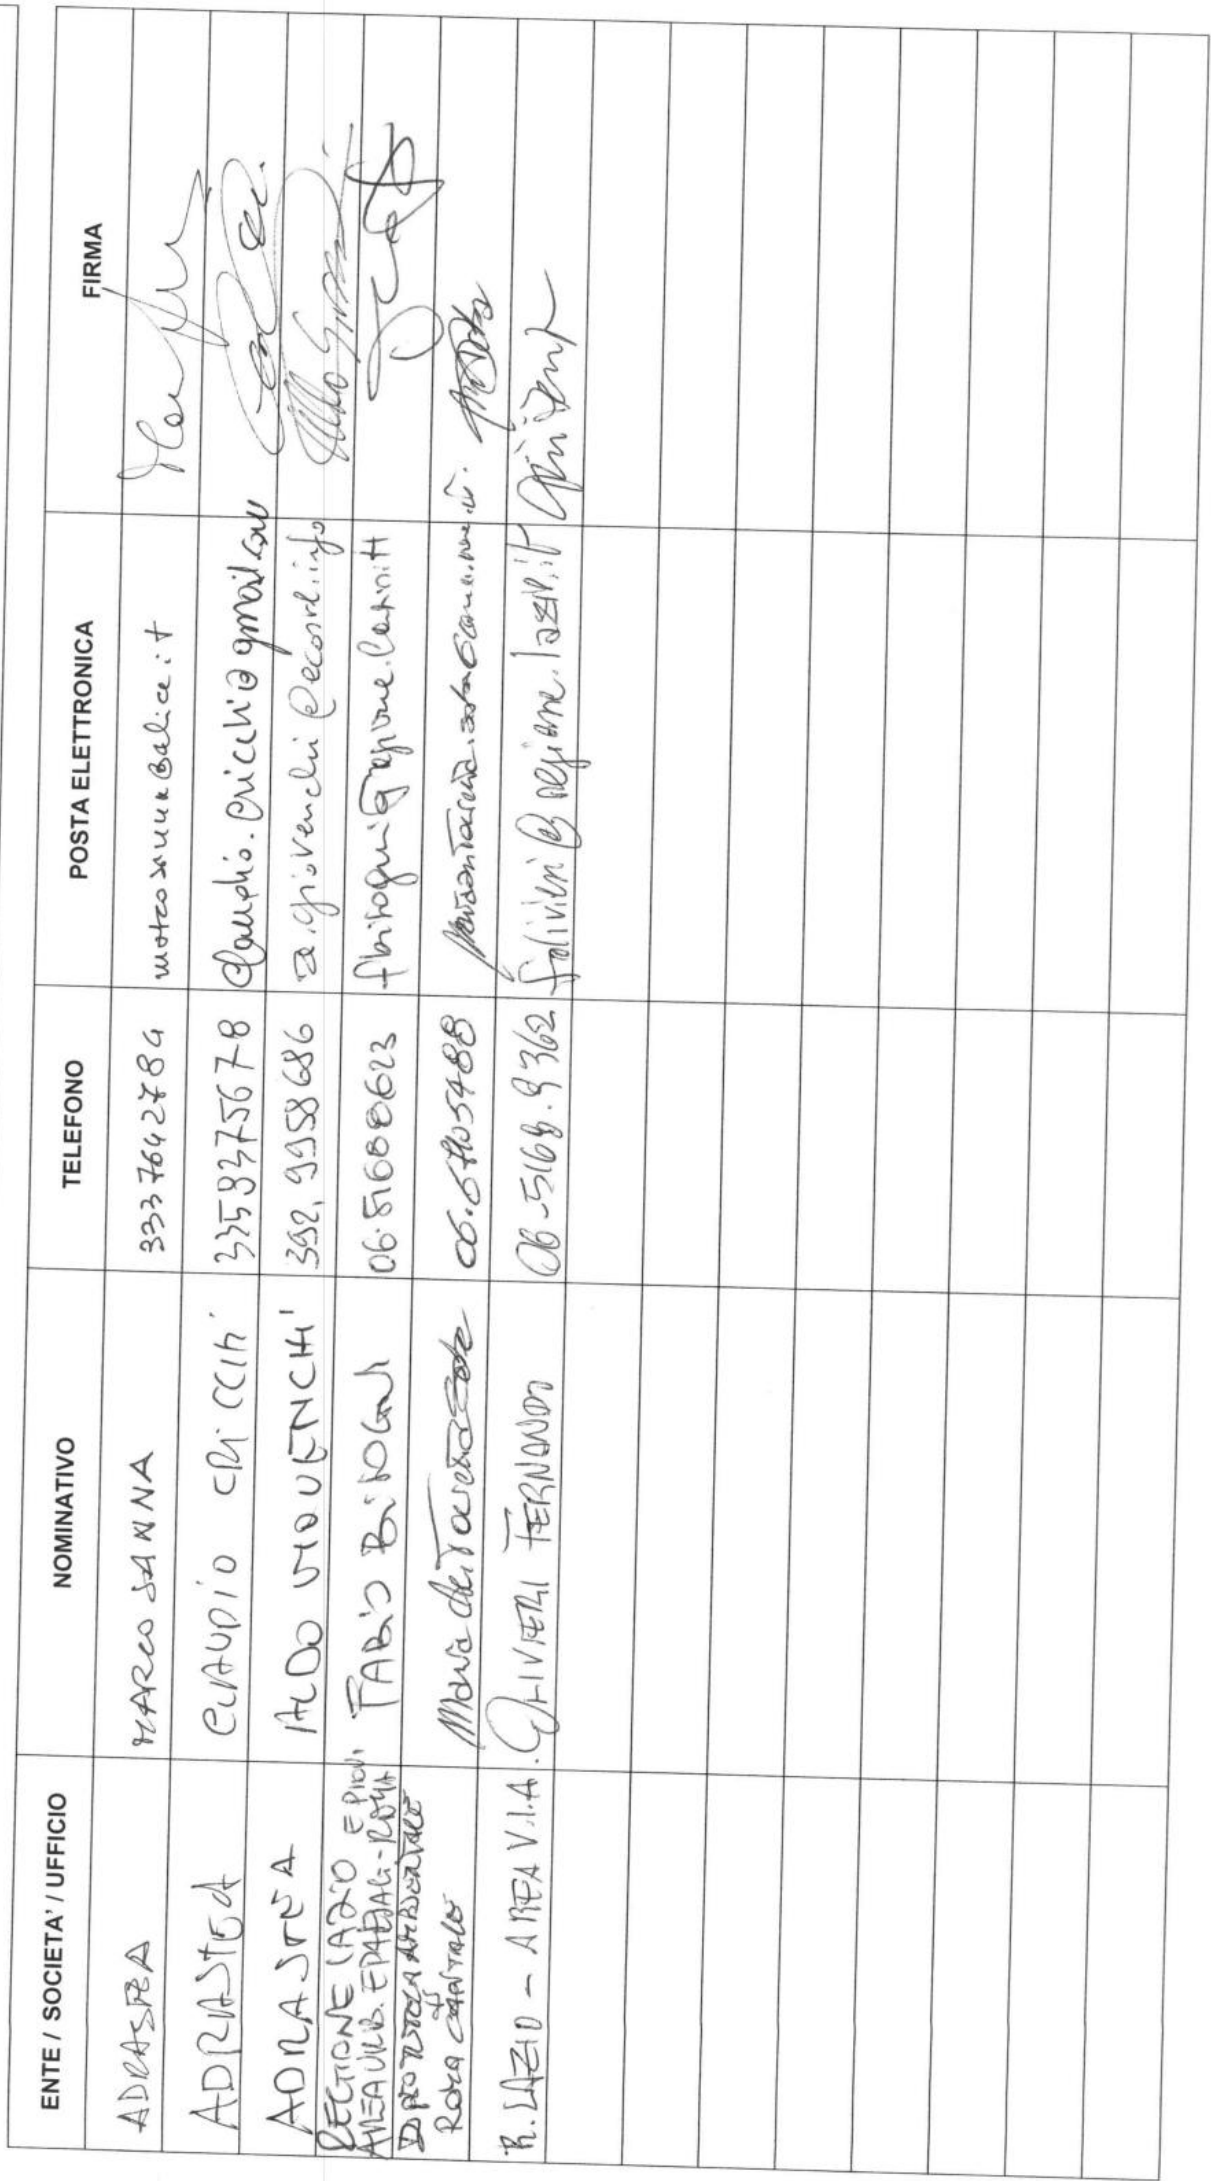 ENTE / SOCIETA' / UFFICIO NOMINATIVO TELEFONO POSTA ELETTRONICA FIRMA
ADRASTEA MARCO SANNA 3337642784
ADRASTEA CLAUDIO CRICCHI 3358375678 claudio.cricchi@gmail.com
ADRASTEA ALDO GIOVENCHI 392.9958686 a.giovenchi@ecosrl.info
REGIONE LAZIO
AREA URB. E PROV. ROMA FABIO BISOGNI 06.51688623 fbisogni@regione.lazio.it
DIP.TO TUTELA AMBIENTALE
ROMA CAPITALE Maria 06.67105488
R. LAZIO - AREA V.I.A. OLIVIERI FERNANDO 06-5168.9362 folivieri@regione.lazio.it